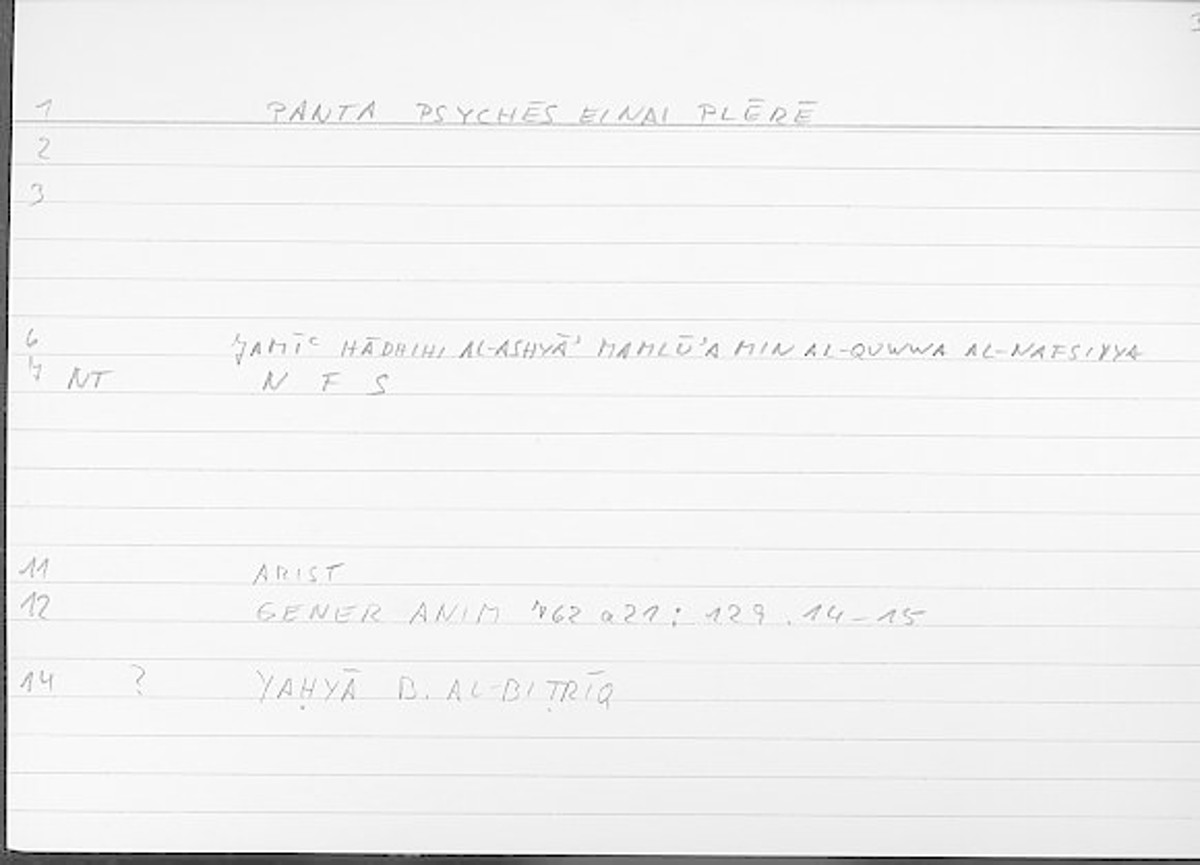 1 PANTA PSYCHĒS EINAI PLĒRĒ
2
3
6 JAMĪʿ HĀDHIHI AL-ASHYĀʾ MAMLŪʾA MIN AL-QUWWA AL-NAFSIYYA
7 NT N F S
11 ARIST
12 GENER ANIM 762 a21 : 129 . 14-15
14 ? YAḤYĀ B. AL-BIṬRĪQ